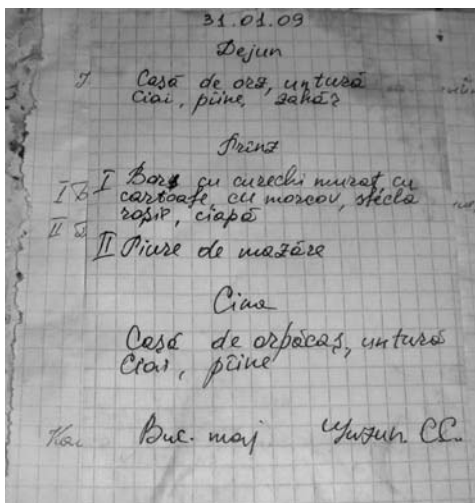 31.01.09
Dejun
Casă de orz, untură
Ciai, pîine, zahăr
Prînz
I Borș cu curechi murat cu
cartoafe, cu morcov, sfecla
roșie, ciapă
II Piure de mazăre
Cina
Casă de arpăcaș, untură
Ciai, pîine
Buc. maj